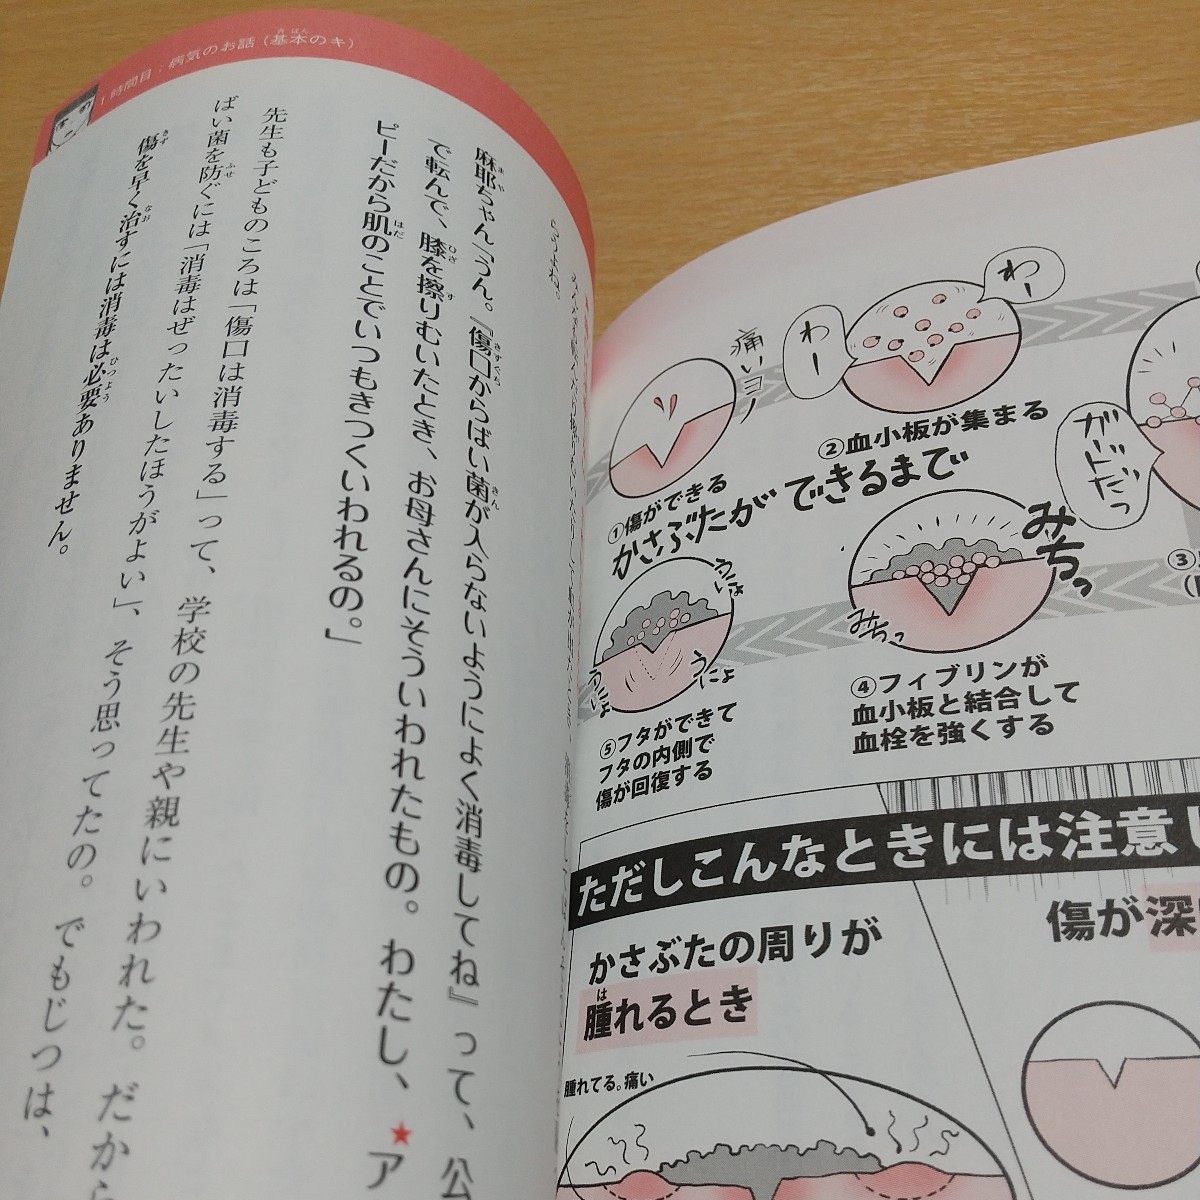 1時間目：病気のお話（基本のキ）
麻耶ちゃん「うん。『傷口からばい菌が入らないようによく消毒してね』って、公
で転んで、膝を擦りむいたとき、お母さんにそういわれたもの。わたし、★ア
ピーだから肌のことでいつもきつくいわれるの。」
先生も子どものころは「傷口は消毒する」って、学校の先生や親にいわれた。だから
ばい菌を防ぐには「消毒はぜったいしたほうがよい」、そう思ってたの。でもじつは、
傷を早く治すには消毒は必要ありません。
痛いヨ
わー
わー
①傷ができる
②血小板が集まる
かさぶたができるまで
ガードだっ
③
④フィブリンが
血小板と結合して
血栓を強くする
みちっ
みちっ
⑤フタができて
フタの内側で
傷が回復する
うにょ
うにょ
うにょ
ただしこんなときには注意し
かさぶたの周りが
腫れるとき
腫れてる。痛い
傷が深